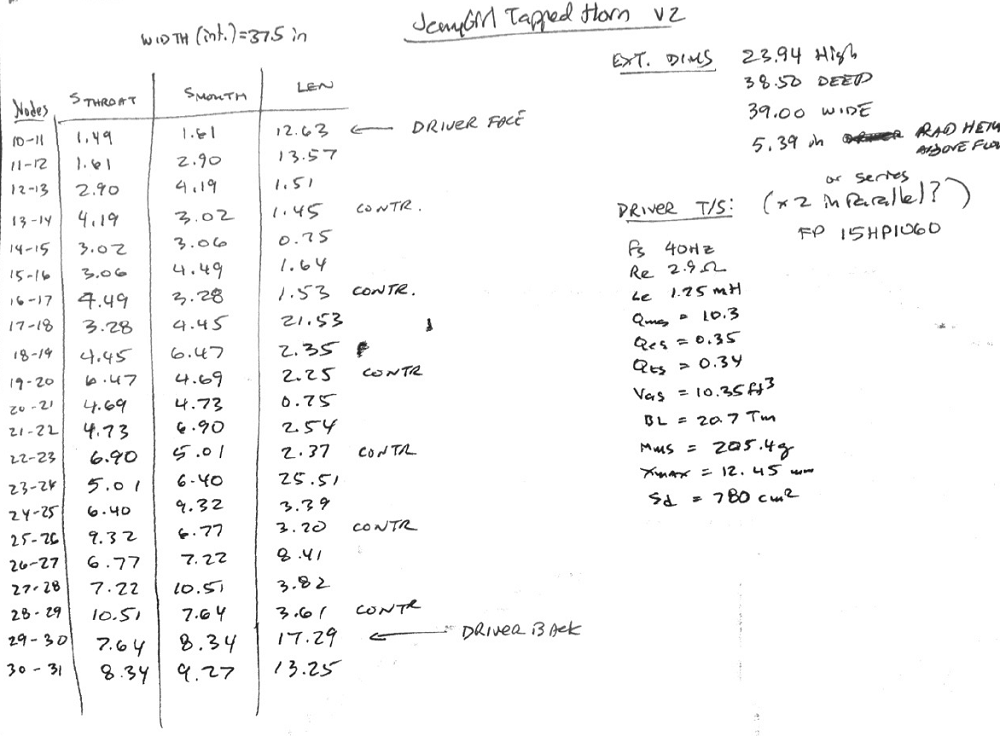 JennyGirl Tapped Horn v2
WIDTH (int.)=37.5 in
EXT. DIMS 23.94 High
38.50 DEEP
39.00 WIDE
5.39 in RAD HEIGHT
ABOVE FLOOR
Nodes STHROAT SMOUTH LEN
10-11 1.49 1.61 12.63 ← DRIVER FACE
11-12 1.61 2.90 13.57
12-13 2.90 4.19 1.51
13-14 4.19 3.02 1.45 CONTR.
14-15 3.02 3.06 0.75
15-16 3.06 4.49 1.64
16-17 4.49 3.28 1.53 CONTR.
17-18 3.28 4.45 21.53
18-19 4.45 6.47 2.35
19-20 6.47 4.69 2.25 CONTR
20-21 4.69 4.73 0.75
21-22 4.73 6.90 2.54
22-23 6.90 5.01 2.37 CONTR
23-24 5.01 6.40 25.51
24-25 6.40 9.32 3.39
25-26 9.32 6.77 3.20 CONTR
26-27 6.77 7.22 8.41
27-28 7.22 10.51 3.82
28-29 10.51 7.64 3.61 CONTR
29-30 7.64 8.34 17.29 ← DRIVER BACK
30-31 8.34 9.27 13.25
or series
DRIVER T/S: (x2 in Parallel?)
FP 15HP1060
Fs 40Hz
Re 2.9Ω
Le 1.25 mH
Qms = 10.3
Qes = 0.35
Qts = 0.34
Vas = 10.35 ft3
BL = 20.7 Tm
Mms = 205.4g
Xmax = 12.45 mm
Sd = 780 cm2